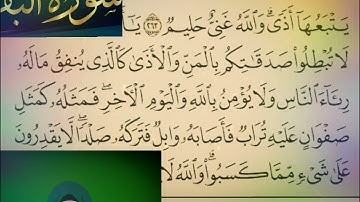 سورة البق
يَتْبَعُهَآ أَذًى ۗ وَٱللَّهُ غَنِىٌّ حَلِيمٌ ﴿٢٦٣﴾ يَـٰٓ
لَا تُبْطِلُوا۟ صَدَقَـٰتِكُم بِٱلْمَنِّ وَٱلْأَذَىٰ كَٱلَّذِى يُنفِقُ مَالَهُۥ
رِئَآءَ ٱلنَّاسِ وَلَا يُؤْمِنُ بِٱللَّهِ وَٱلْيَوْمِ ٱلْـَٔاخِرِ ۖ فَمَثَلُهُۥ كَمَثَلِ
صَفْوَانٍ عَلَيْهِ تُرَابٌ فَأَصَابَهُۥ وَابِلٌ فَتَرَكَهُۥ صَلْدًا ۖ لَّا يَقْدِرُونَ
عَلَىٰ شَىْءٍ مِّمَّا كَسَبُوا۟ ۗ وَٱللَّهُ لَا